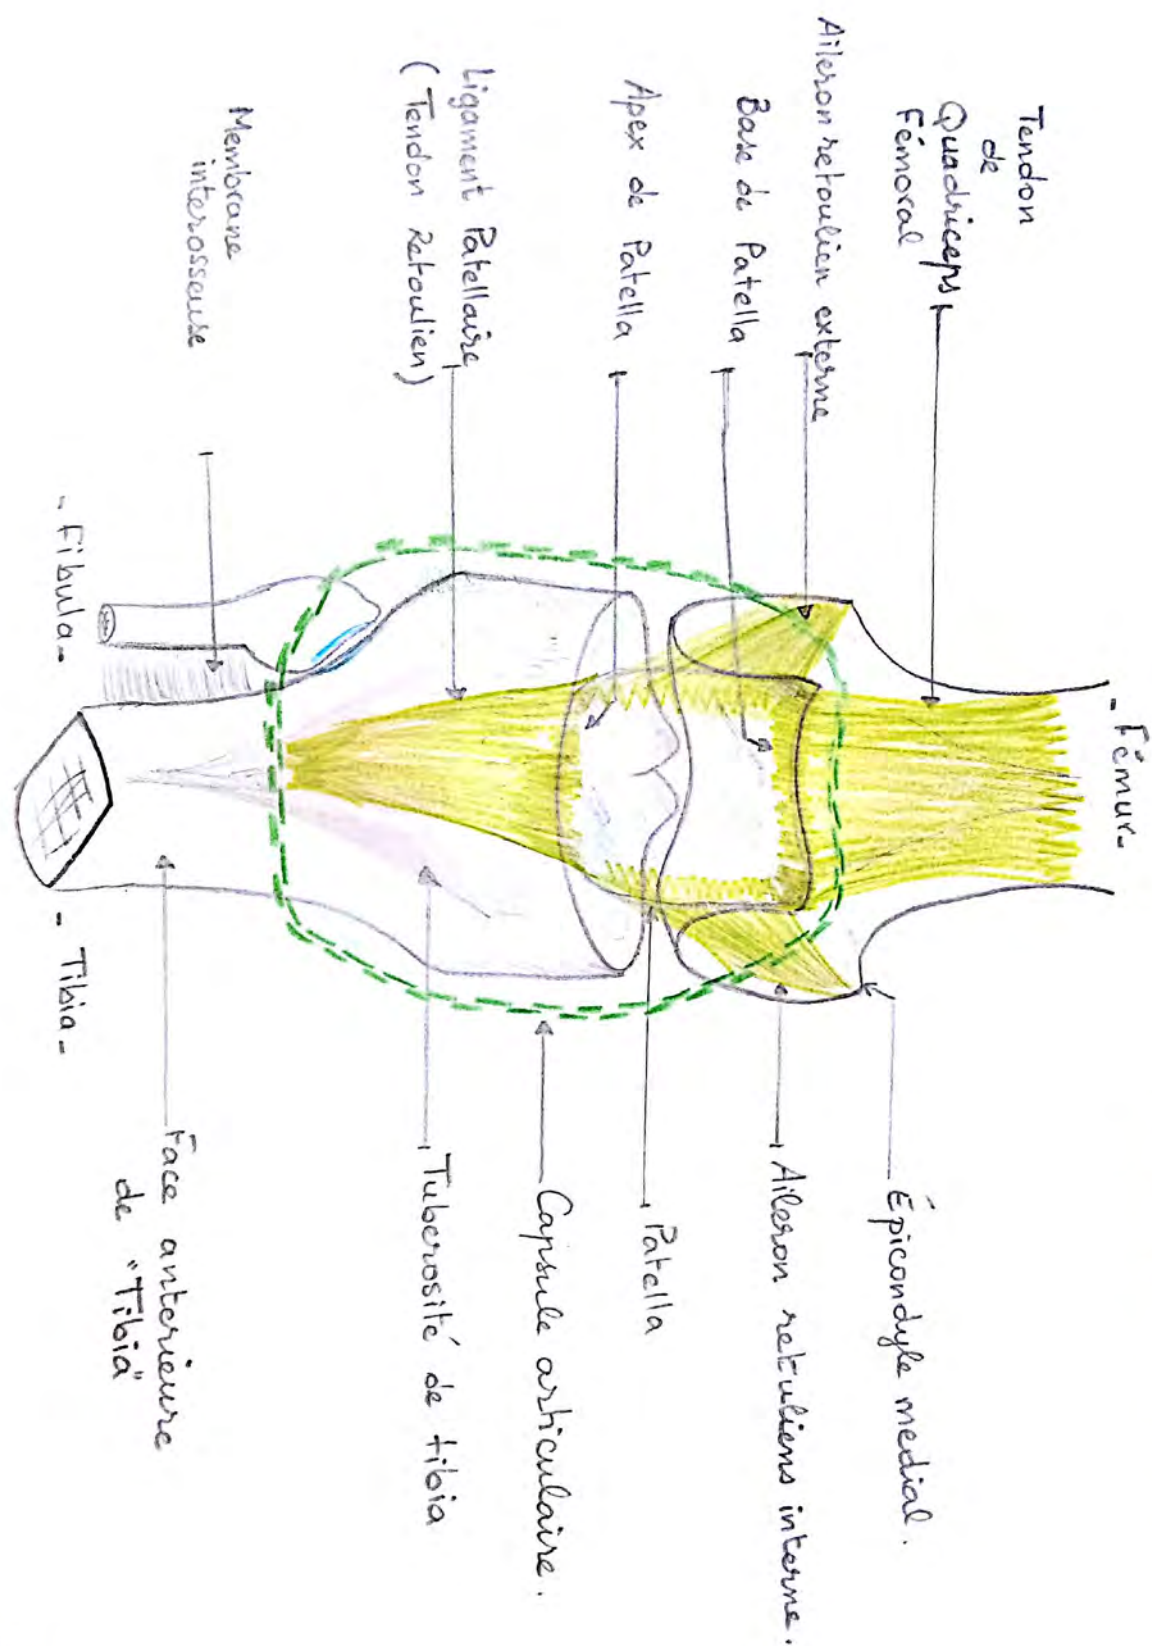 - Fémur-
Tendon
de
Quadriceps
Fémoral
Aileron retoulien externe
Base de Patella
Apex de Patella
Ligament Patellaire
( Tendon Retoulien)
Membrane
interosseuse
- Fibula-
Épicondyle medial.
Aileron retuliens interne.
Patella
Capsule articulaire.
Tuberosité de tibia
Face anterieure
de "Tibia"
- Tibia-